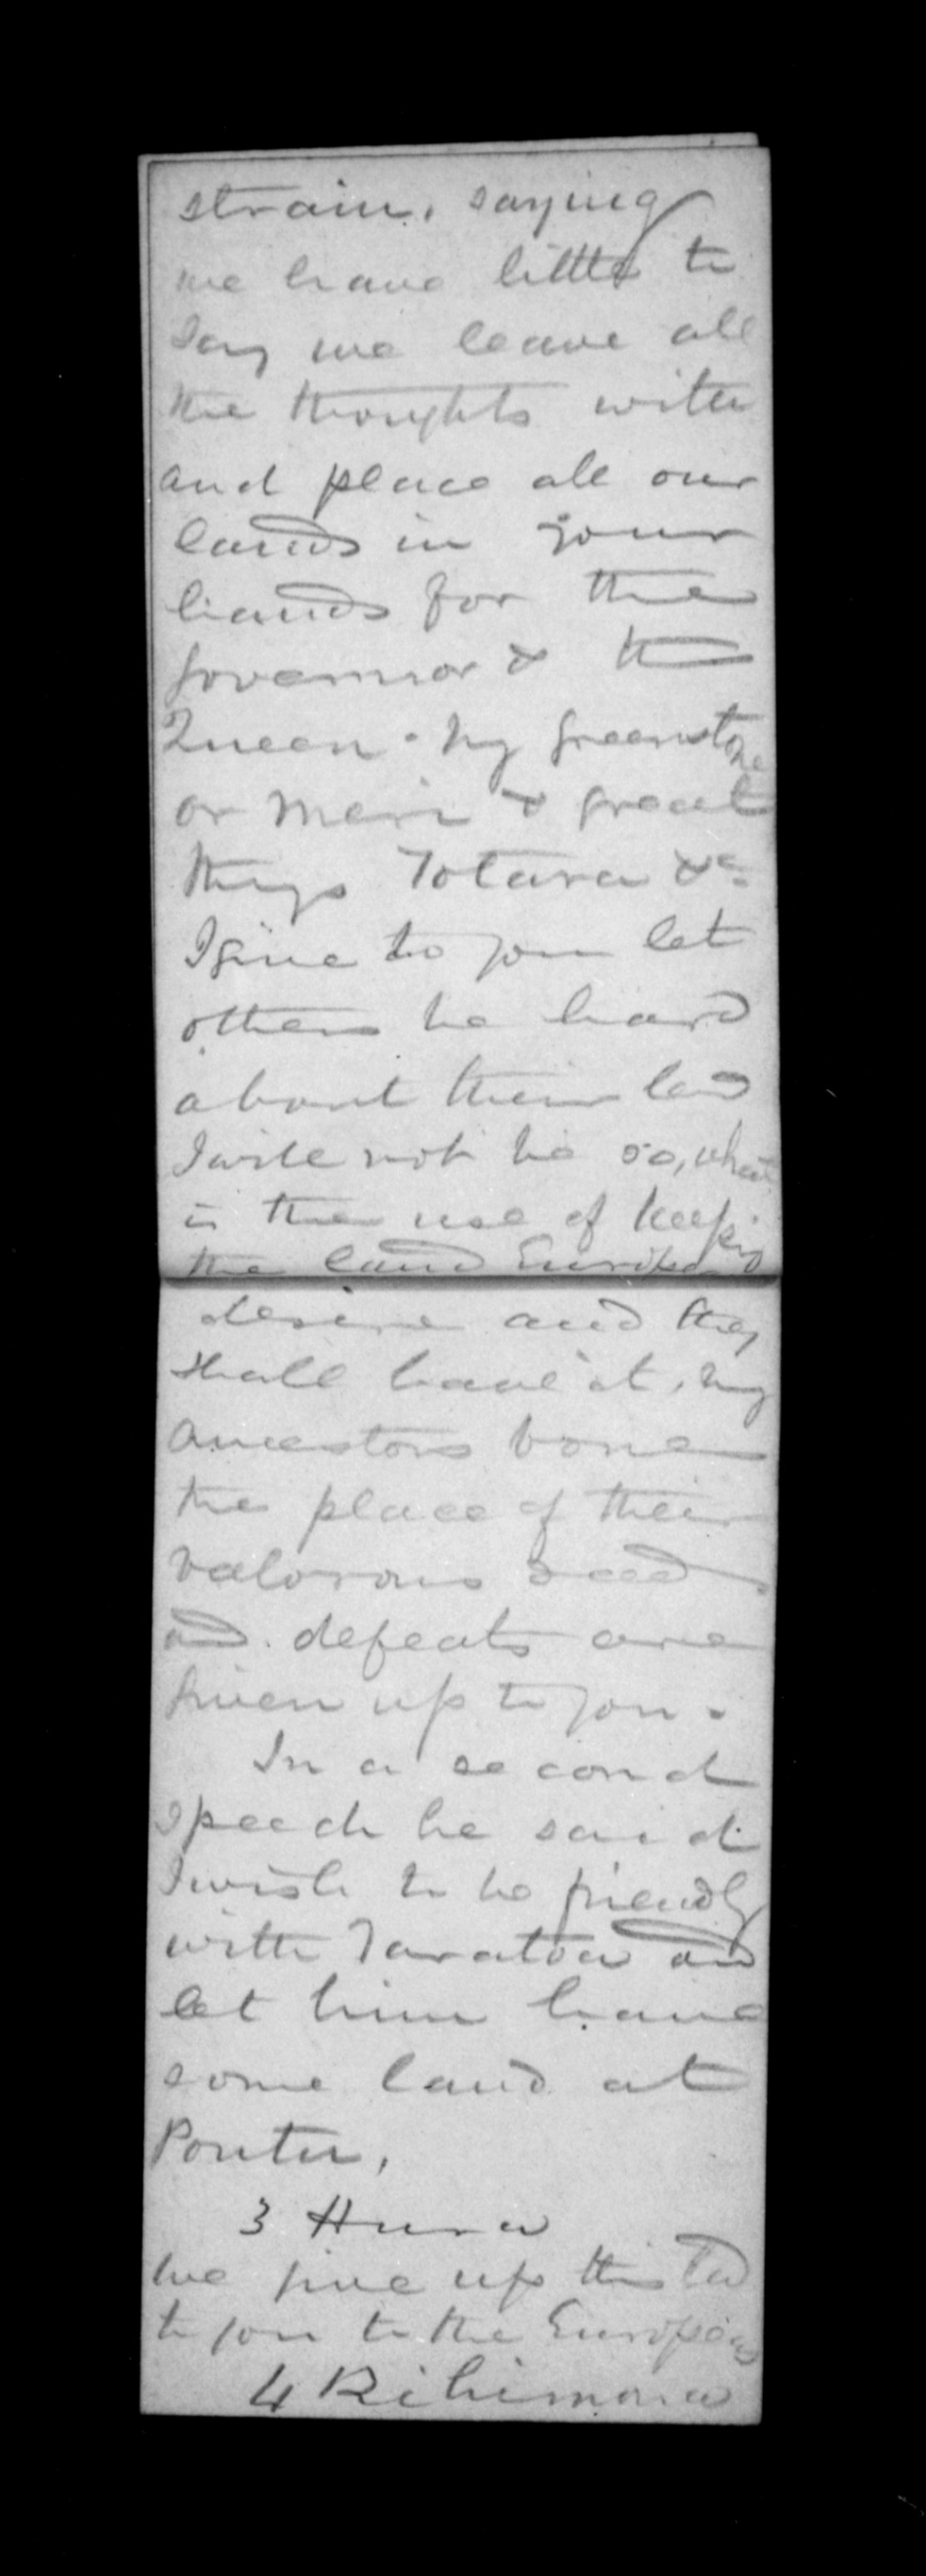 strain, saying
we have little to
say we leave all
the thoughts with
and place all our
lands in your
hands for the
Governor & the
Queen. My greenstone
or Meri & great
things Totara &c
I give to you let
others be hard
about their land
I will not be so, what
is the use of keeping
the land Europeans
desire and they
shall have it, my
ancestors bones
the place of their
valorous deeds
and defeats are
given up to you.
In a second
speech he said
I wish to be friendly
with Taratoa and
let him have
some land at
Poutu,
3 Hura
We give up this land
to you to the Europeans
4 Kihimona